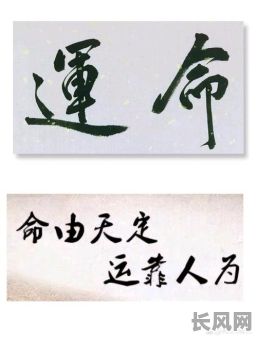 運命
命由天定
运靠人为
长风网